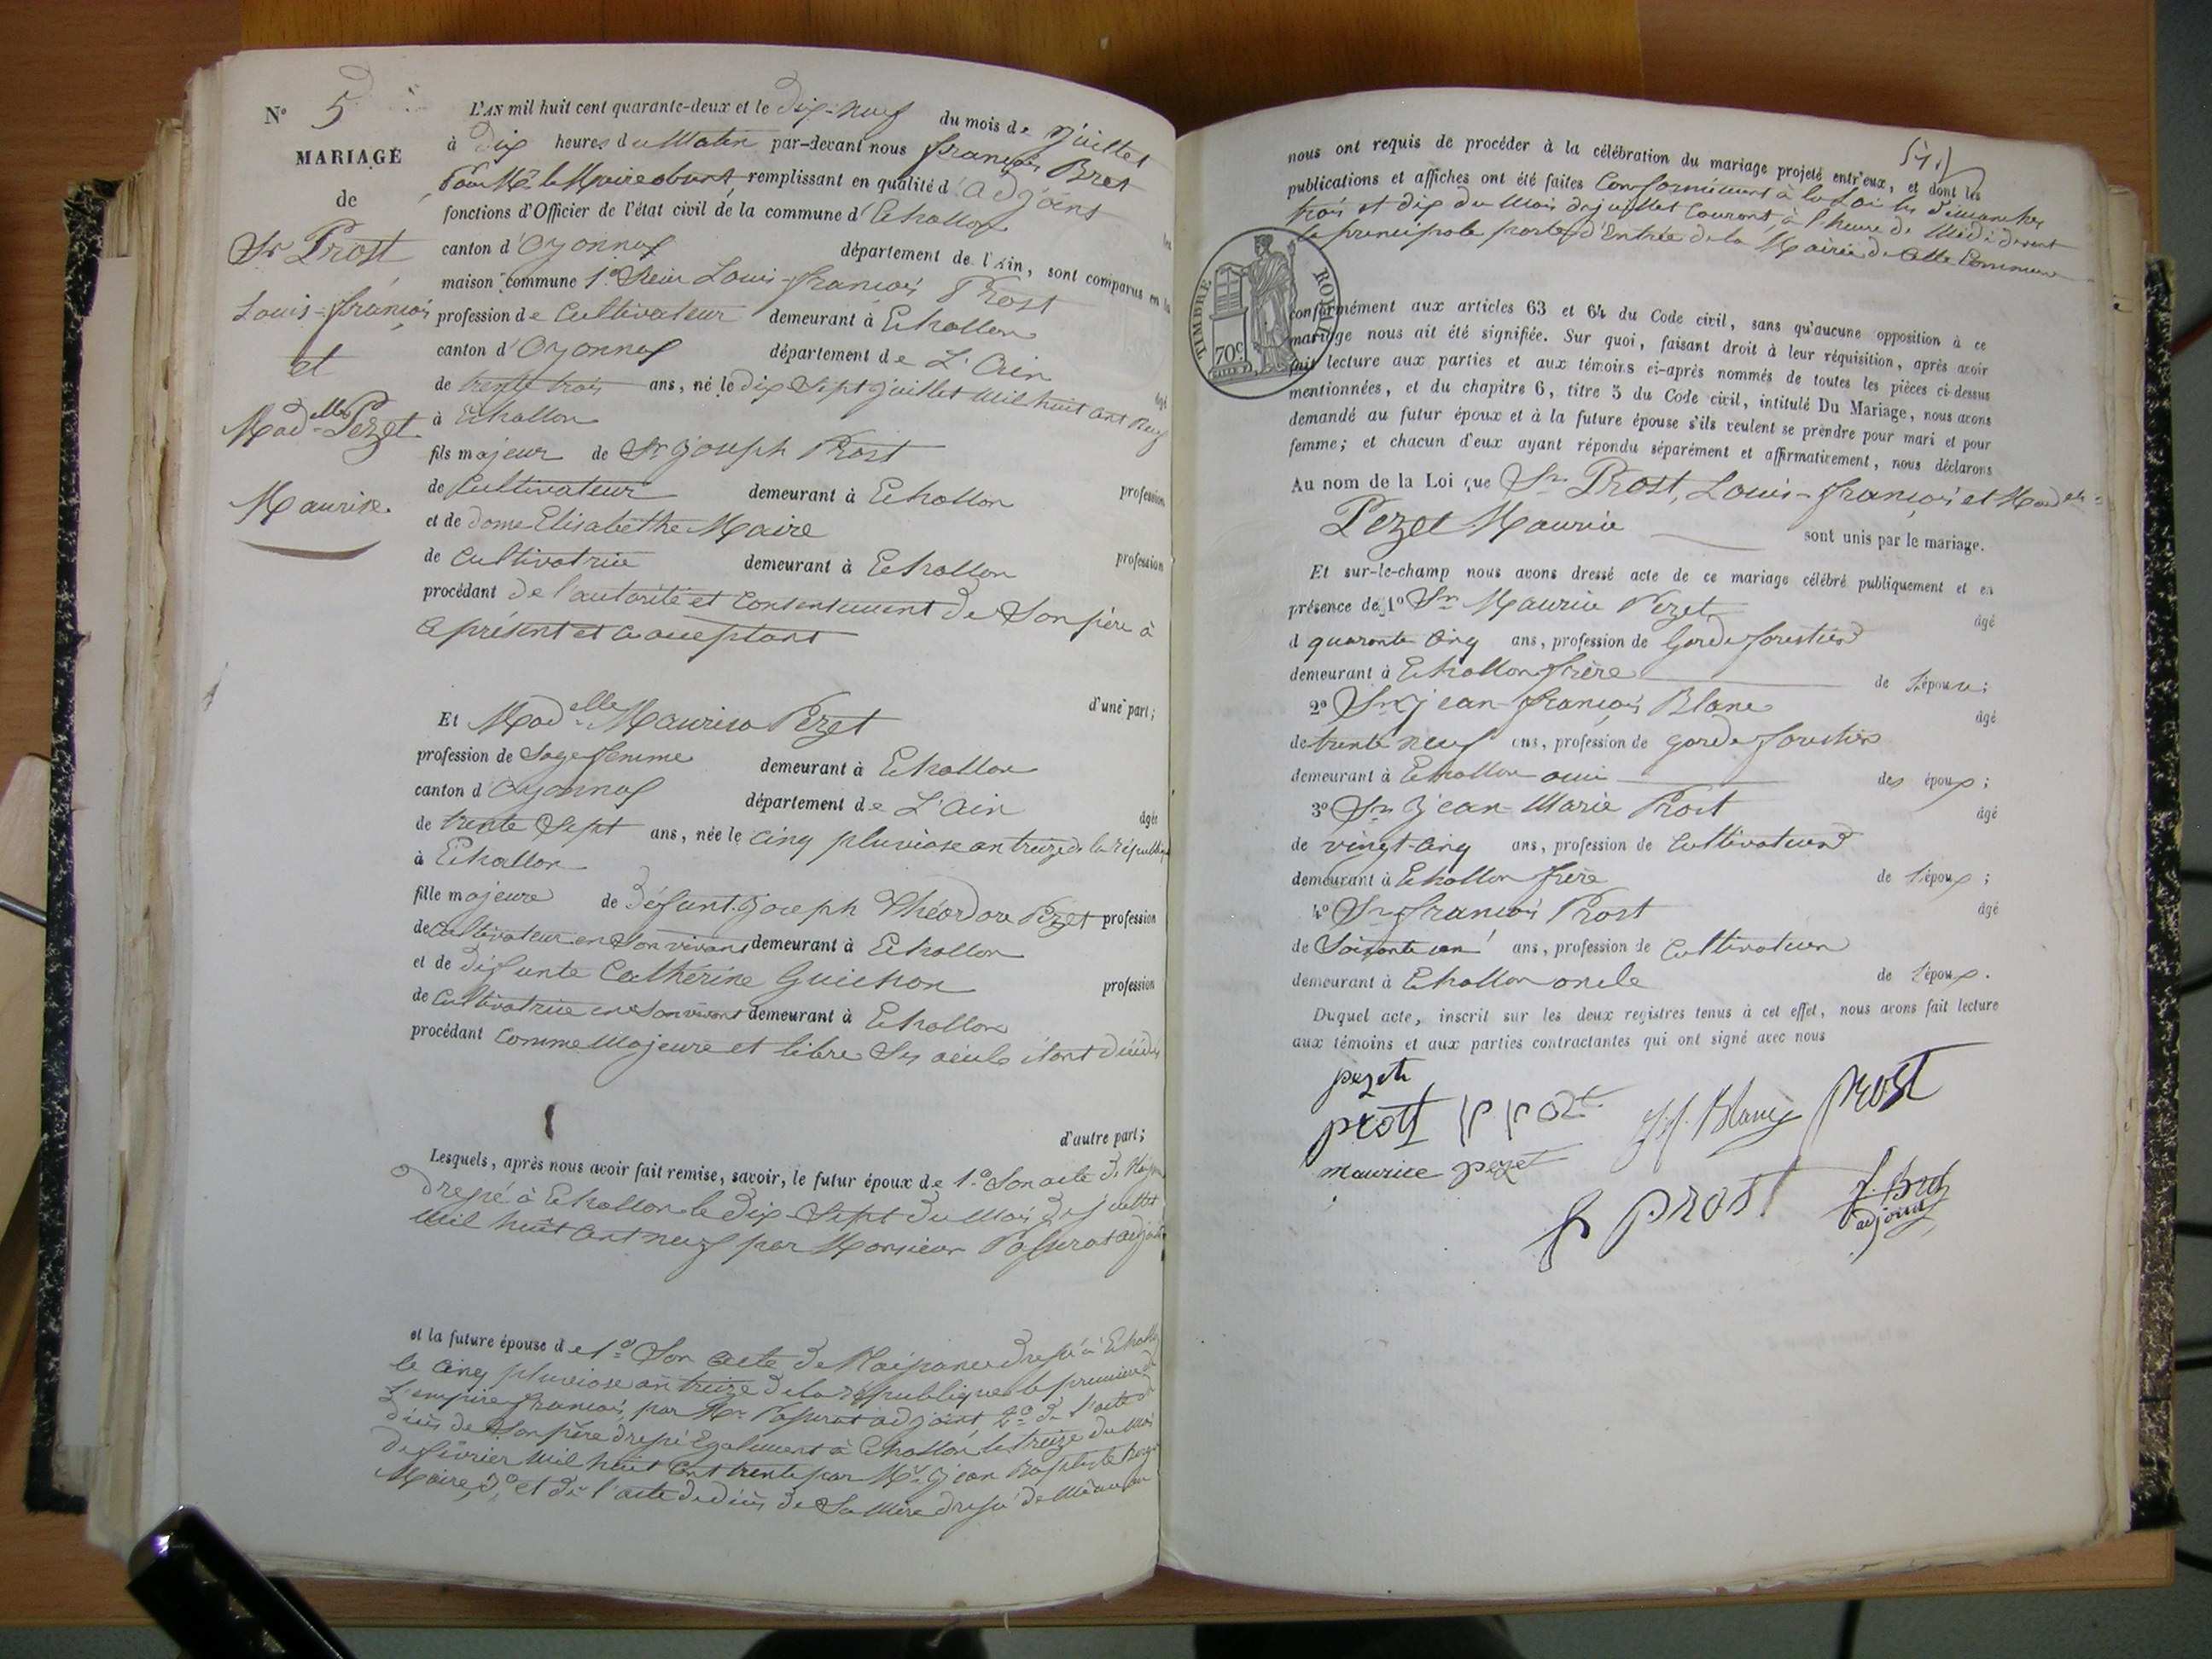 N° 5
MARIAGE
de
Sr Prost
Louis-françois
et
Madelle Pezet
Maurise.
L'AN mil huit cent quarante-deux et le dix-neuf du mois de juillet
à dix heures du Matin par-devant nous françois Bret
pour Mr. le Maire absent, remplissant en qualité d'adjoint les
fonctions d'Officier de l'état civil de la commune d'Echallon
canton d'Oyonnax département de l'Ain, sont comparus en la
maison commune 1° Sieur Louis-françois Prost
profession de Cultivateur demeurant à Echallon
canton d'Oyonnax département de L'Ain âgé
de trente trois ans, né le dix Sept juillet mil huit cent neuf
à Echallon
fils majeur de Sr joseph Prost profession
de Cultivateur demeurant à Echallon
et de dame Elisabethe Maire profession
de Cultivatrice demeurant à Echallon
procédant de l'autorité et Consentement de Son père à
ce présent et acceptant
d'une part;
Et Madelle Maurise Pezet
profession de Sage femme demeurant à Echallon
canton d'Oyonnax département de L'Ain âgée
de trente Sept ans, née le cinq pluviose an treize de la république
à Echallon
fille majeure de défunt joseph Théordore Pezet profession
de Cultivateur en Son vivant demeurant à Echallon
et de défunte Cathérine Guichon profession
de Cultivatrice en Son vivant demeurant à Echallon
procédant comme Majeure et libre Ses aieuls étant décédés
d'autre part;
Lesquels, après nous avoir fait remise, savoir, le futur époux de 1.° Son acte de
dressé à Echallon le dix-Sept du Mois de juillet
mil huit cent neuf par Monsieur Passerat adjoint
et la future épouse de 1° Son acte de Naissance dressé à
le cinq pluviose an treize de la république le premier de
L'empire françois, par Mr Passerat adjoint 2° de l'acte de
décès de Son père dressé Egalement à Echallon le treize du Mois
de février Mil huit Cent trente par Mr. jean Baptiste
Maire, 3° et de l'acte de décès de Sa Mère dressé de Même au
nous ont requis de procéder à la célébration du mariage projeté entr'eux, et dont les
publications et affiches ont été faites Conformément à la Loi les dimanches
trois et dix du Mois de juillet Courant, à l'heure de Midi devant
la principale porte d'Entrée de la Mairie de Cette Commune
TIMBRE ROYAL
70c
conformément aux articles 63 et 64 du Code civil, sans qu'aucune opposition à ce
mariage nous ait été signifiée. Sur quoi, faisant droit à leur réquisition, après avoir
fait lecture aux parties et aux témoins ci-après nommés de toutes les pièces ci-dessus
mentionnées, et du chapitre 6, titre 5 du Code civil, intitulé Du Mariage, nous avons
demandé au futur époux et à la future épouse s'ils veulent se prendre pour mari et pour
femme; et chacun d'eux ayant répondu séparément et affirmativement, nous déclarons
Au nom de la Loi que Sr Prost, Louis-françois et Madelle
Pezet Maurise sont unis par le mariage.
Et sur-le-champ nous avons dressé acte de ce mariage célébré publiquement et en
présence de 1° Sr Maurice Pezet âgé
d quarante cinq ans, profession de Garde forestier
demeurant à Echallon frère de l'épouse;
2° Sr jean-françois Blanc âgé
de trente neuf ans, profession de garde forestier
demeurant à Echallon ami des époux;
3° Sr jean-Marie Prost âgé
de vingt-cinq ans, profession de Cultivateur
demeurant à Echallon frère de l'époux;
4° Sr françois Prost âgé
de Soixante un ans, profession de Cultivateur
demeurant à Echallon oncle de l'époux.
Duquel acte, inscrit sur les deux registres tenus à cet effet, nous avons fait lecture
aux témoins et aux parties contractantes qui ont signé avec nous
pezet
prost Blanc prost
maurice pezet
f prost f. Bret
adjoint